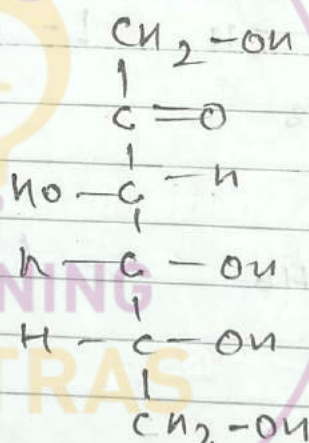 CH2-OH
C=O
HO-C-H
H-C-OH
H-C-OH
CH2-OH
NING
TRAS